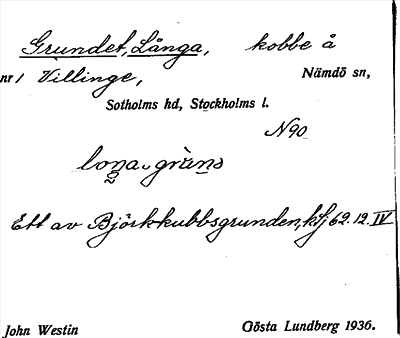 Grundet, Långa, kobbe å
nr 1 Villinge, Nämdö sn,
Sotholms hd, Stockholms l.
N90
Ett av Björkkubbsgrunden, kfj 62.12.IV
John Westin Gösta Lundberg 1936.